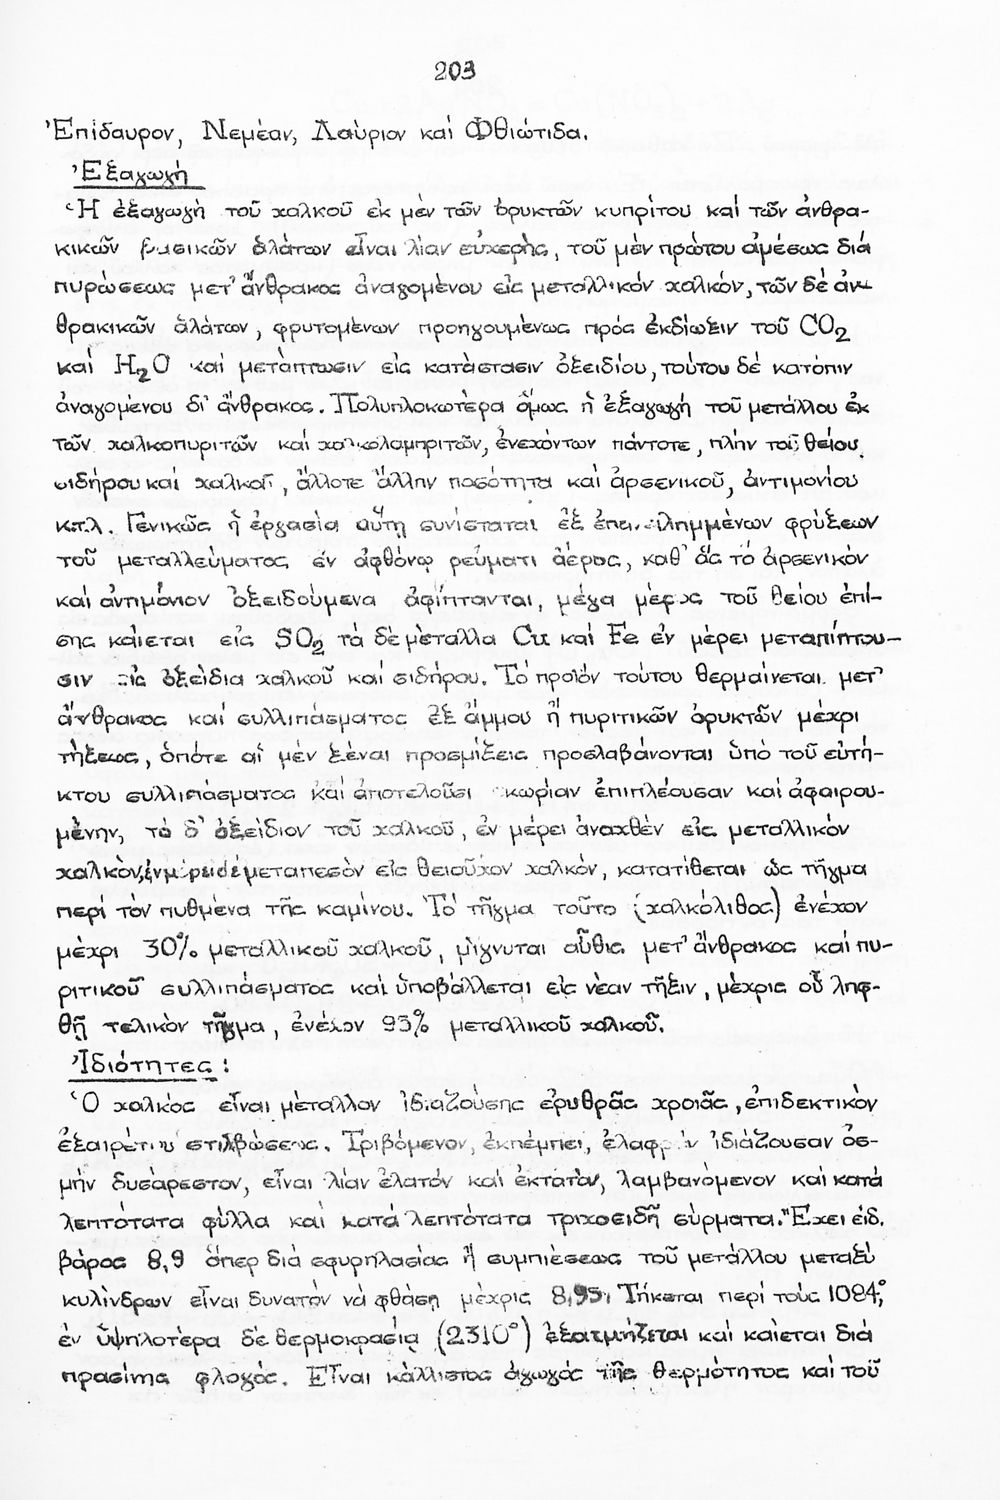 203
Ἐπίδαυρον, Νεμέαν, Λαύριον καί Φθιώτιδα.
Ἐξαγωγή
Ἡ ἐξαγωγή τοῦ χαλκοῦ ἐκ μέν τῶν ὀρυκτῶν κυπρίτου καί τῶν ἀνθρα-
κικῶν βασικῶν ἁλάτων εἶναι λίαν εὐχερής, τοῦ μέν πρώτου ἀμέσως διά
πυρώσεως μετ' ἄνθρακος ἀναγομένου εἰς μεταλλικόν χαλκόν, τῶν δέ ἀν-
θρακικῶν ἁλάτων, φρυτομένων προηγουμένως πρός ἐκδίωξιν τοῦ CO2
καί H2O καί μετάπτωσιν εἰς κατάστασιν ὀξειδίου, τούτου δέ κατόπιν
ἀναγομένου δι' ἄνθρακος. Πολυπλοκωτέρα ὅμως ἡ ἐξαγωγή τοῦ μετάλλου ἐκ
τῶν χαλκοπυριτῶν καί χαλκολαμπριτῶν, ἐνεχόντων πάντοτε, πλήν τοῦ θείου,
σιδήρου καί χαλκοῦ, ἄλλοτε ἄλλην ποσότητα καί ἀρσενικοῦ, ἀντιμονίου
κ.τ.λ. Γενικῶς ἡ ἐργασία αὕτη συνίσταται ἐξ ἐπανειλημμένων φρύξεων
τοῦ μεταλλεύματος ἐν ἀφθόνῳ ρεύματι ἀέρος, καθ' ἅς τό ἀρσενικόν
καί ἀντιμόνιον ὀξειδούμενα ἀφίπτανται, μέγα μέρος τοῦ θείου ἐπί-
σης καίεται εἰς SO2 τά δέ μέταλλα Cu καί Fe ἐν μέρει μεταπίπτου-
σιν εἰς ὀξείδια χαλκοῦ καί σιδήρου. Τό προϊόν τούτου θερμαίνεται μετ'
ἄνθρακος καί συλλιπάσματος ἐξ ἄμμου ἤ πυριτικῶν ὀρυκτῶν μέχρι
τήξεως, ὁπότε αἱ μέν ξέναι προσμίξεις προσλαβάνονται ὑπό τοῦ εὐτή-
κτου συλλιπάσματος καί ἀποτελοῦσι σκωρίαν ἐπιπλέουσαν καί ἀφαιρου-
μένην, τό δ' ὀξείδιον τοῦ χαλκοῦ, ἐν μέρει ἀναχθέν εἰς μεταλλικόν
χαλκόν, ἐν μέρει δέ μεταπεσόν εἰς θειοῦχον χαλκόν, κατατίθεται ὡς τῆγμα
περί τόν πυθμένα τῆς καμίνου. Τό τῆγμα τοῦτο (χαλκόλιθος) ἐνέχον
μέχρι 30% μεταλλικοῦ χαλκοῦ, μίγνυται αὖθις μετ' ἄνθρακος καί πυ-
ριτικοῦ συλλιπάσματος καί ὑποβάλλεται εἰς νέαν τῆξιν, μέχρις οὗ ληφ-
θῇ τελικόν τῆγμα, ἐνέχον 93% μεταλλικοῦ χαλκοῦ.
Ἰδιότητες:
Ὁ χαλκός εἶναι μέταλλον ἰδιαζούσης ἐρυθρᾶς χροιᾶς, ἐπιδεκτικόν
ἐξαιρέτου στιλβώσεως. Τριβόμενον, ἐκπέμπει, ἐλαφράν ἰδιάζουσαν ὀσ-
μήν δυσάρεστον, εἶναι λίαν ἐλατόν καί ἐκτατόν, λαμβανόμενον καί κατά
λεπτότατα φύλλα καί κατά λεπτότατα τριχοειδῆ σύρματα. Ἔχει εἰδ.
βάρος 8,9 ὅπερ διά σφυρηλασίας ἤ συμπιέσεως τοῦ μετάλλου μεταξύ
κυλίνδρων εἶναι δυνατόν νά φθάσῃ μέχρις 8,95. Τήκεται περί τούς 1084°,
ἐν ὑψηλοτέρα δέ θερμοκρασίᾳ (2310°) ἐξατμίζεται καί καίεται διά
πρασίνης φλογός. Εἶναι κάλλιστος ἀγωγός τῆς θερμότητος καί τοῦ